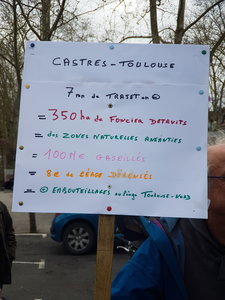 CASTRES-TOULOUSE
7 mn DE TRAJET ☹
= 350 ha DE FONCIER DÉTRUITS
= des ZONES NATURELLES ANÉANTIES
= 100 M€ GASPILLÉS
= 8€ DE PÉAGE DÉPENSÉS
= ☹ EMBOUTEILLAGES au Péage Toulouse-Nord